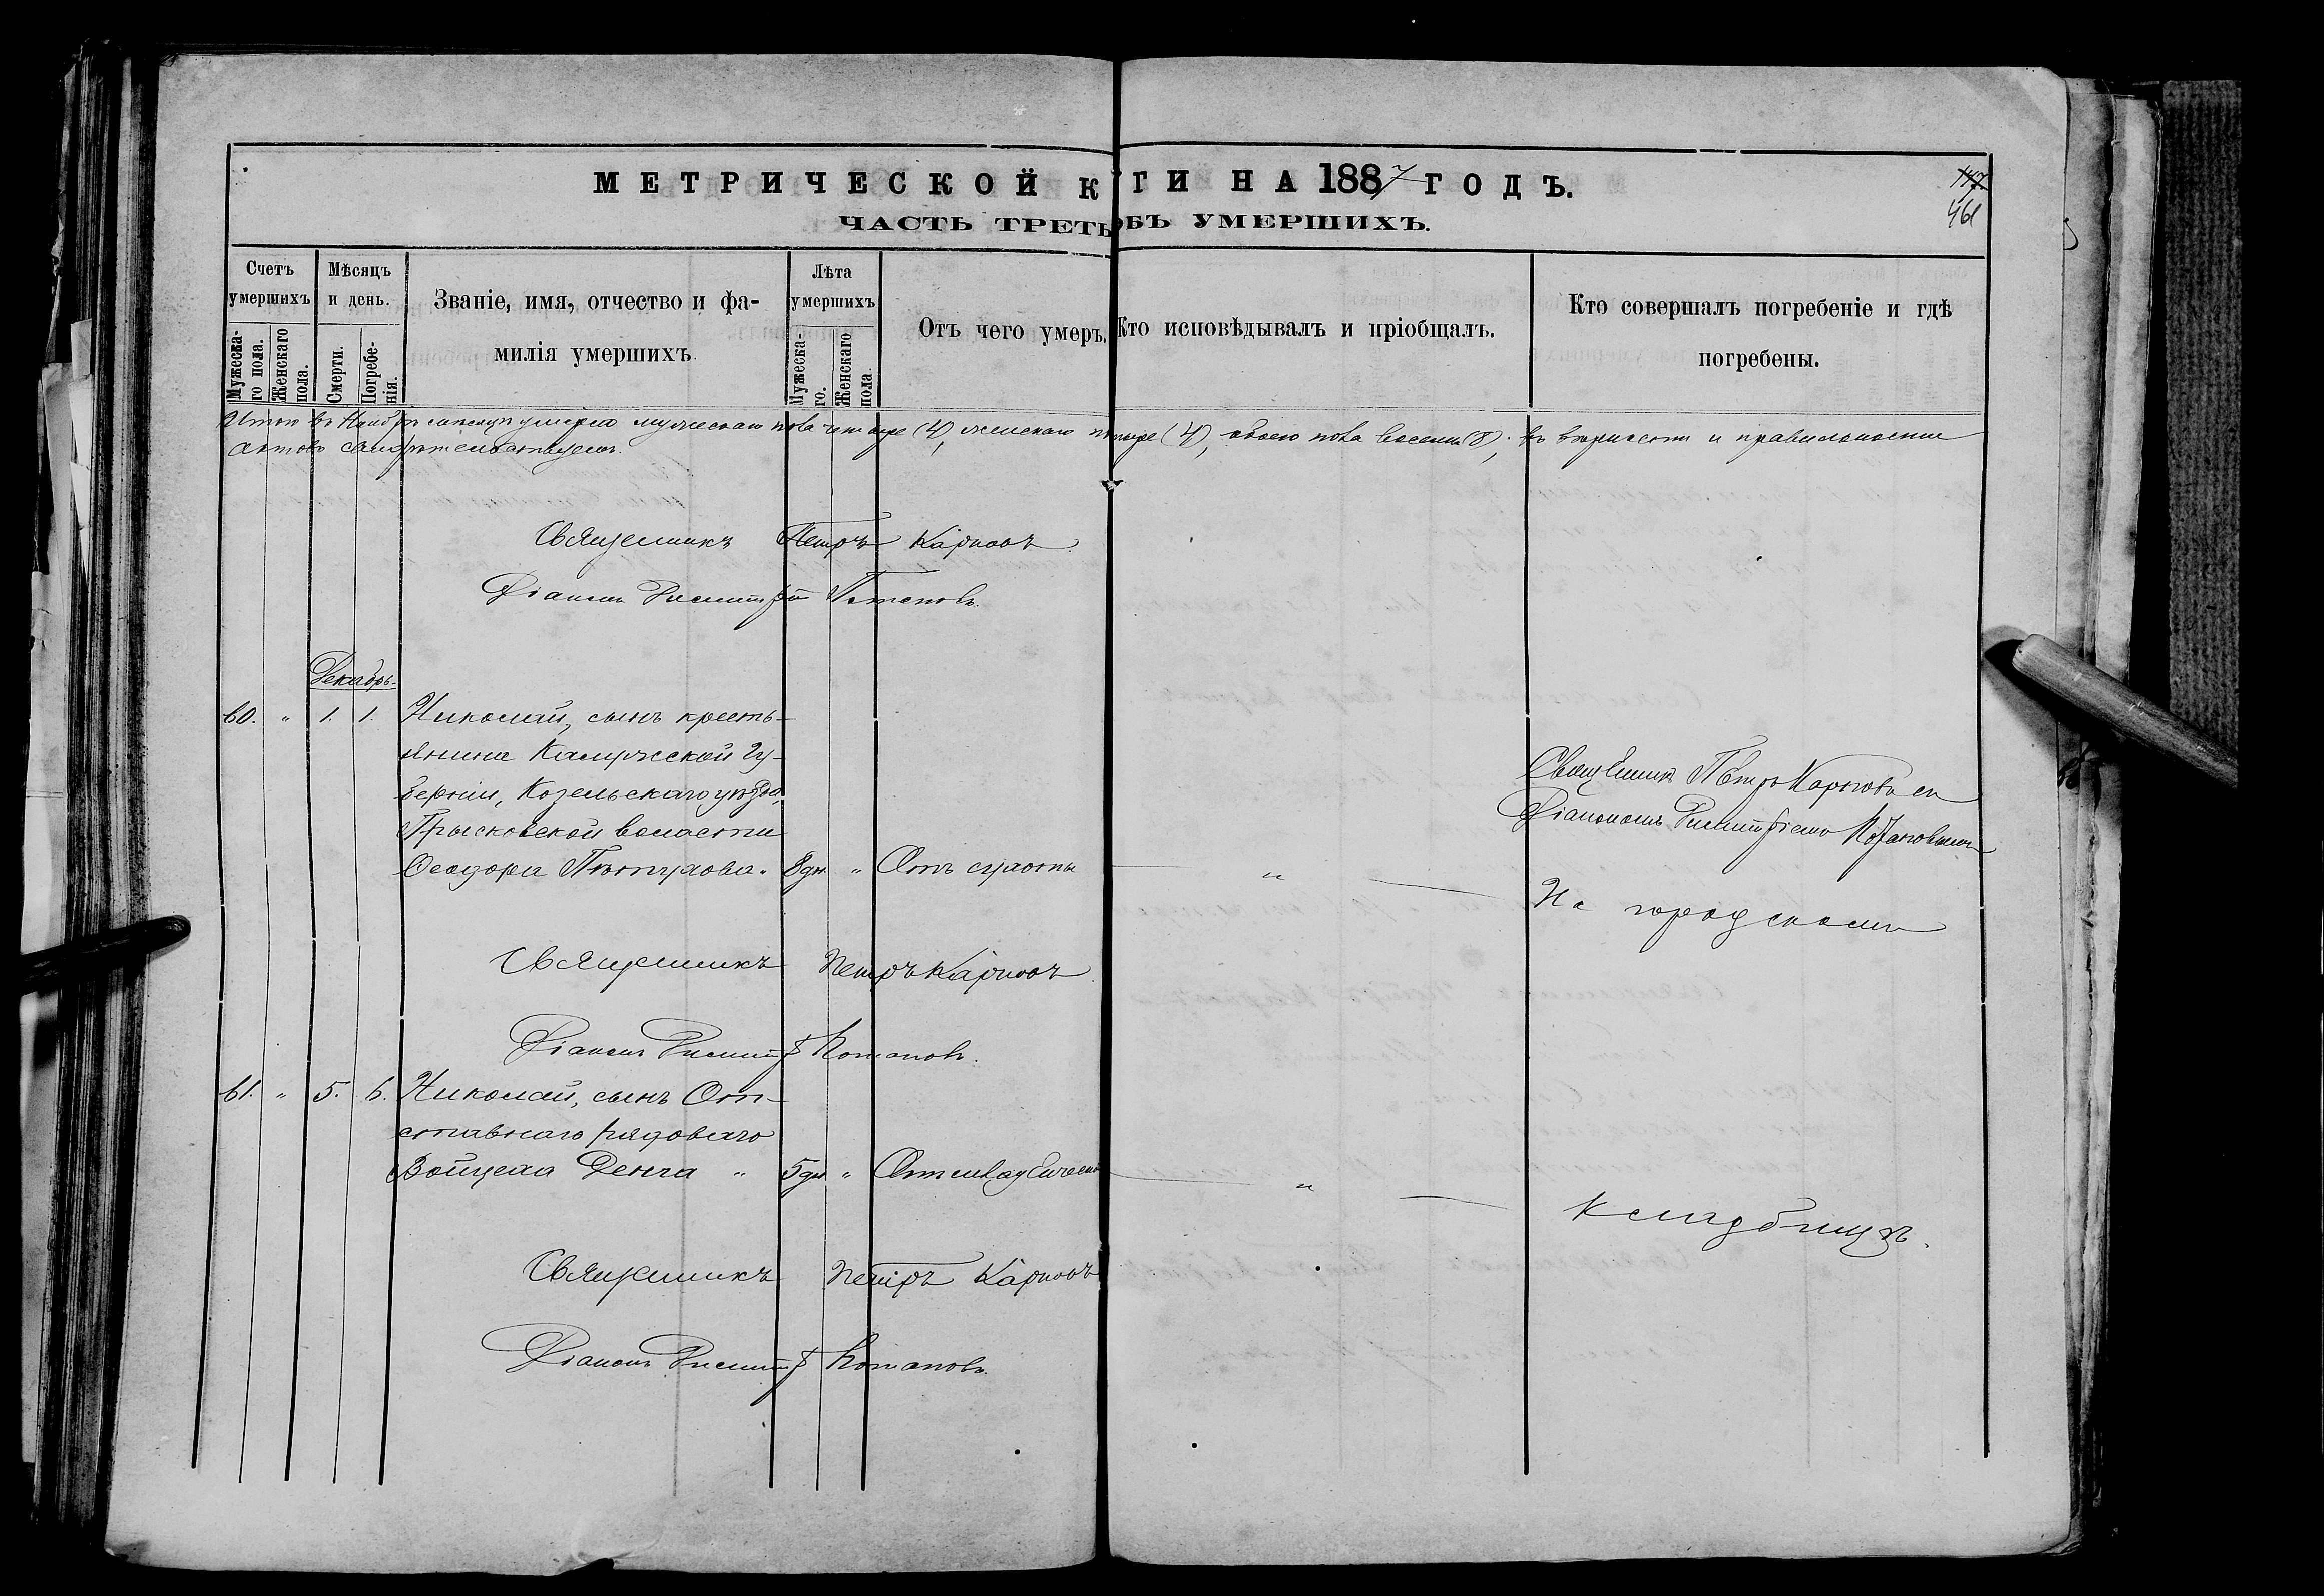 МЕТРИЧЕСКОЙ К ГИ НА 1887 ГОДЪ.
147
461
ЧАСТЬ ТРЕТЬ ОБЪ УМЕРШИХЪ.
Счетъ умершихъ
Мужеска-го пола.
Женскаго пола.
Мѣсяцъ и день.
Смерти.
Погребе-нія.
Званіе, имя, отчество и фа-
милія умершихъ
Лѣта умершихъ
Мужеска-го.
Женскаго пола
Отъ чего умеръ.
Кто исповѣдывалъ и пріобщалъ.
Кто совершалъ погребеніе и гдѣ
погребены.
Итого въ Ноябрѣ мѣсяцѣ умерло мужескаго пола четыре (4), женскаго (4), обоего пола восемь (8); въ вѣрности и правильности
актовъ свидѣтельствуемъ.
Священникъ Петръ Карповъ
Діаконъ Димитрій Потаповъ.
Декабрь.
60. " 1. 1. Николай, сынъ кресть-
янина Калужской Гу-
берніи, Козельскаго уѣзда,
Прысковской волости
Ѳеодора Пѣтухова. 8 дн. " Отъ сухоты "
Священникъ Петръ Карповъ съ
Діакономъ Димитріемъ Потаповымъ
На городскомъ
Священникъ Петръ Карповъ
Діаконъ Димит. Потаповъ.
61. " 5. 6. Николай, сынъ От-
ставнаго рядоваго
Войцеха Денга " 5 дн. " Отъ младенческ "
кладбищѣ.
Священникъ Петръ Карповъ
Діаконъ Димит. Потаповъ.